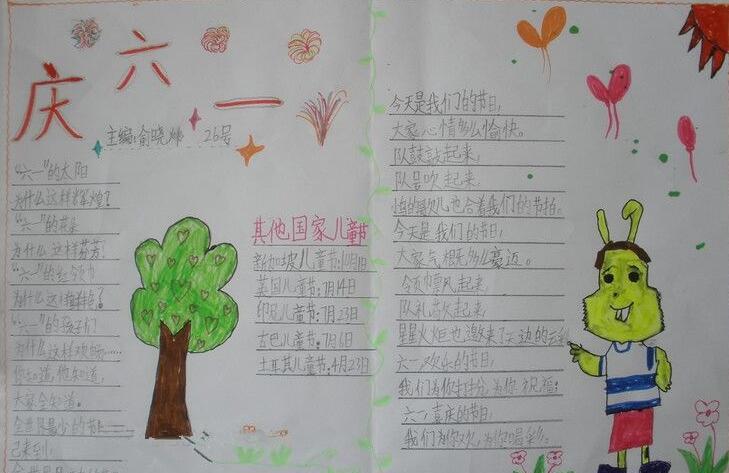 庆六一
主编:俞晓 26号
"六一"的太阳
为什么这样辉煌?
"六一"的花朵
为什么这样芬芳?
"六一"的红领巾
为什么这
"六一"的孩子们
为什么这样欢畅……
你知道,他知道,
大家全知道。
全世界最少的节日
已来到,
其他国家儿童节
新加坡儿童节:10月1日
美国儿童节:7月14日
印尼儿童节:7月23日
古巴儿童节:7月6日
土耳其儿童节:4月23日
今天是我们的节日,
大家心情多么愉快。
队鼓敲起来,
队号吹起来,
也合着我们的节拍。
今天是我们的节日,
大家气概多么豪迈。
领巾飘起来,
队礼敬起来,
星星火炬也邀来了天边的云彩
六一欢乐的节日,
我们为你打扮,为你祝福;
六一喜庆的节日,
我们为你欢,为你喝彩。